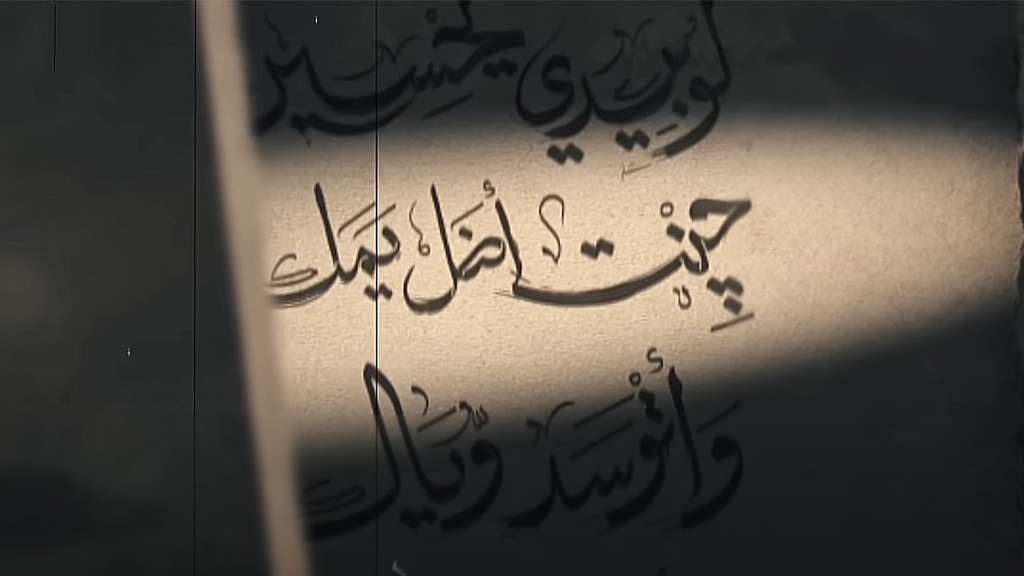 لو بِيدي يحسين
چِنْت أضل يَمك
وَأتْوسَد ويَّاك